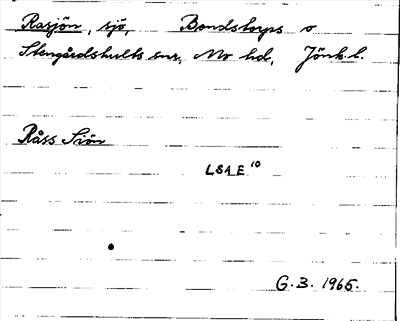 Rasjön, sjö, Bondstorps o
Stengårdshults snr, Mo hd, Jönk. l.
Råss Siön
LSA E 10
G. B. 1965.